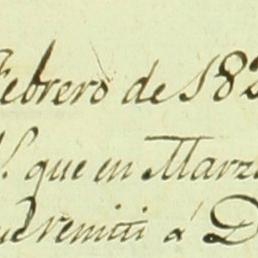 Febrero de 182
que en Marz
remití á D